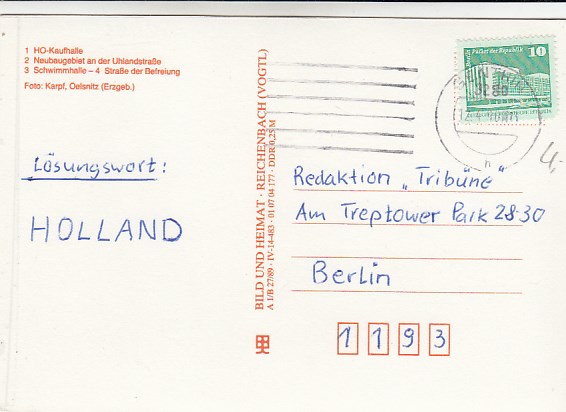 1 HO-Kaufhalle
2 Neubaugebiet an der Uhlandstraße
3 Schwimmhalle – 4 Straße der Befreiung
Foto: Karpf, Oelsnitz (Erzgeb.)
Lösungswort:
HOLLAND
BILD UND HEIMAT · REICHENBACH (VOGTL)
A 1/B 27/89 · IV-14-483 · 01 07 04 177 · DDR 0,25 M
10
Redaktion „Tribüne"
Am Treptower Park 28-30
Berlin
1193
4,-